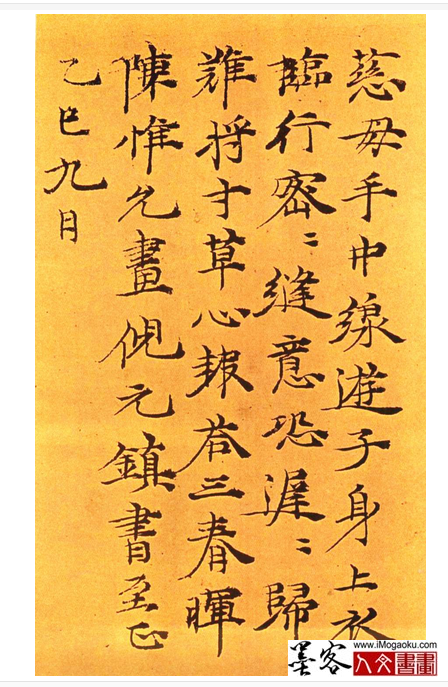 慈母手中線遊子身上衣
臨行密〻縫意恐遲〻歸
難将寸草心報荅三春暉
陳惟允畫倪元鎮書至正
乙巳九月
www.iMogaoku.com
墨客